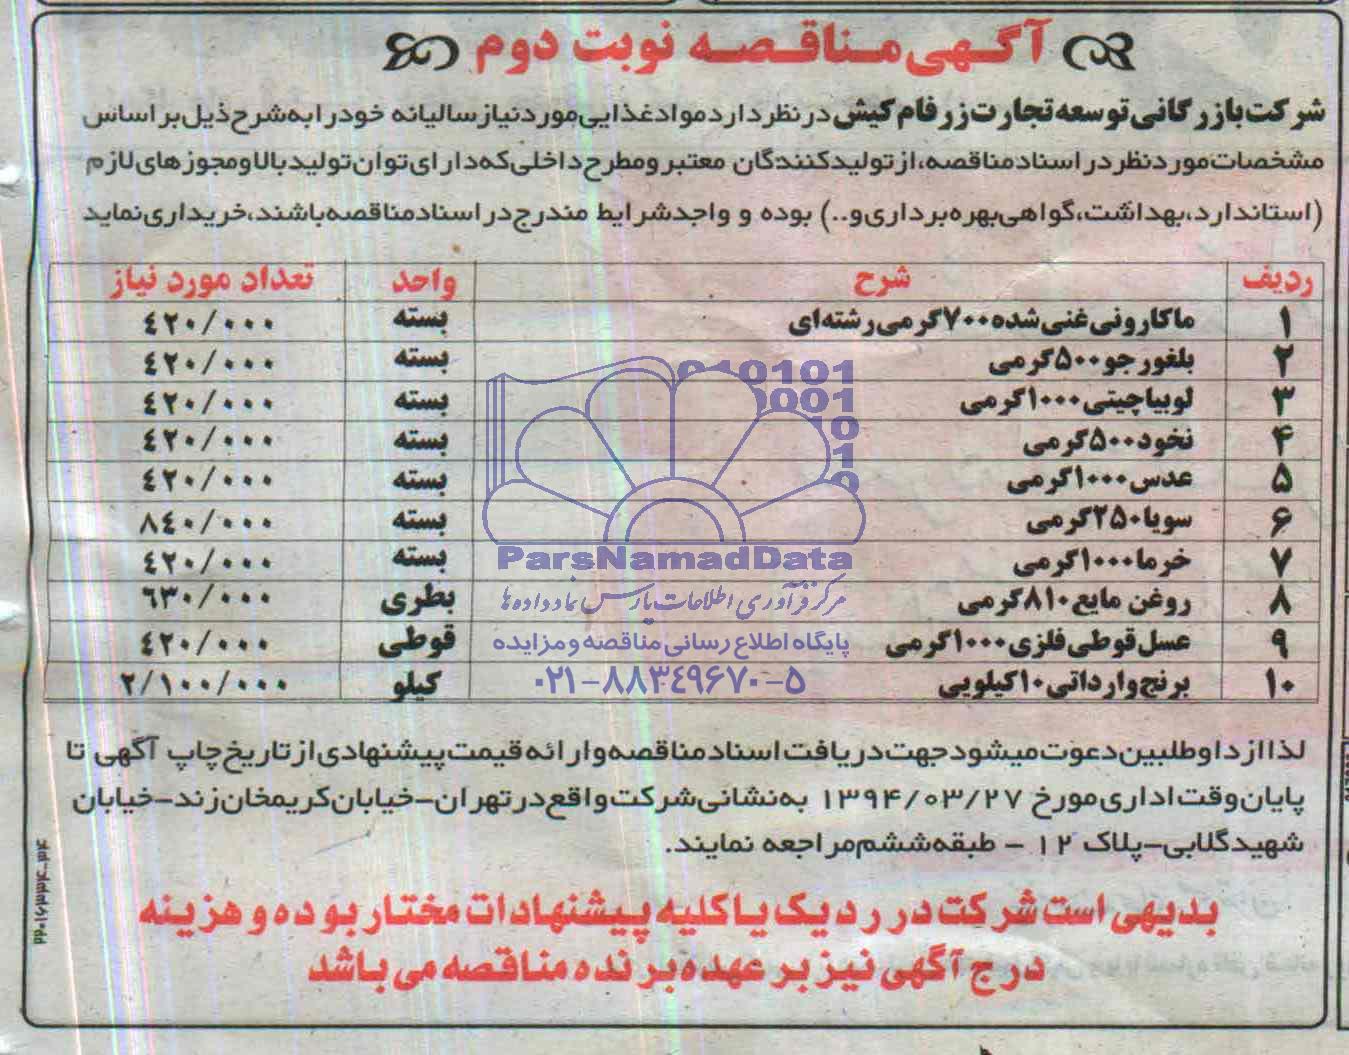 آگهی مناقصه نوبت دوم
شرکت بازرگانی توسعه تجارت زرفام کیش در نظر دارد مواد غذایی مورد نیاز سالیانه خود را به شرح ذیل بر اساس
مشخصات مورد نظر در اسناد مناقصه، از تولید کنندگان معتبر و مطرح داخلی که دارای توان تولید بالا و مجوزهای لازم
(استاندارد، بهداشت، گواهی بهره برداری و..) بوده و واجد شرایط مندرج در اسناد مناقصه باشند، خریداری نماید
ردیف شرح واحد تعداد مورد نیاز
۱ ماکارونی غنی شده ۷۰۰ گرمی رشته‌ای بسته ۴۲۰/۰۰۰
۲ بلغور جو ۵۰۰ گرمی بسته ۴۲۰/۰۰۰
۳ لوبیا چیتی ۱۰۰۰ گرمی بسته ۴۲۰/۰۰۰
۴ نخود ۵۰۰ گرمی بسته ۴۲۰/۰۰۰
۵ عدس ۱۰۰۰ گرمی بسته ۴۲۰/۰۰۰
۶ سویا ۲۵۰ گرمی بسته ۸۴۰/۰۰۰
۷ خرما ۱۰۰۰ گرمی بسته ۴۲۰/۰۰۰
۸ روغن مایع ۸۱۰ گرمی بطری ۶۳۰/۰۰۰
۹ عسل قوطی فلزی ۱۰۰۰ گرمی قوطی ۴۲۰/۰۰۰
۱۰ برنج وارداتی ۱۰ کیلویی کیلو ۲/۱۰۰/۰۰۰
010101
0001
10
10
0
ParsNamadData
مرکز فرآوری اطلاعات پارس نماد داده ها
پایگاه اطلاع رسانی مناقصه و مزایده
۰۲۱-۸۸۳۴۹۶۷۰-۵
لذا از داوطلبین دعوت میشود جهت دریافت اسناد مناقصه و ارائه قیمت پیشنهادی از تاریخ چاپ آگهی تا
پایان وقت اداری مورخ ۱۳۹۴/۰۳/۲۷ به نشانی شرکت واقع در تهران-خیابان کریمخان زند-خیابان
شهید گلابی-پلاک ۱۲ - طبقه ششم مراجعه نمایند.
بدیهی است شرکت در رد یک یا کلیه پیشنهادات مختار بوده و هزینه
درج آگهی نیز بر عهده برنده مناقصه می باشد